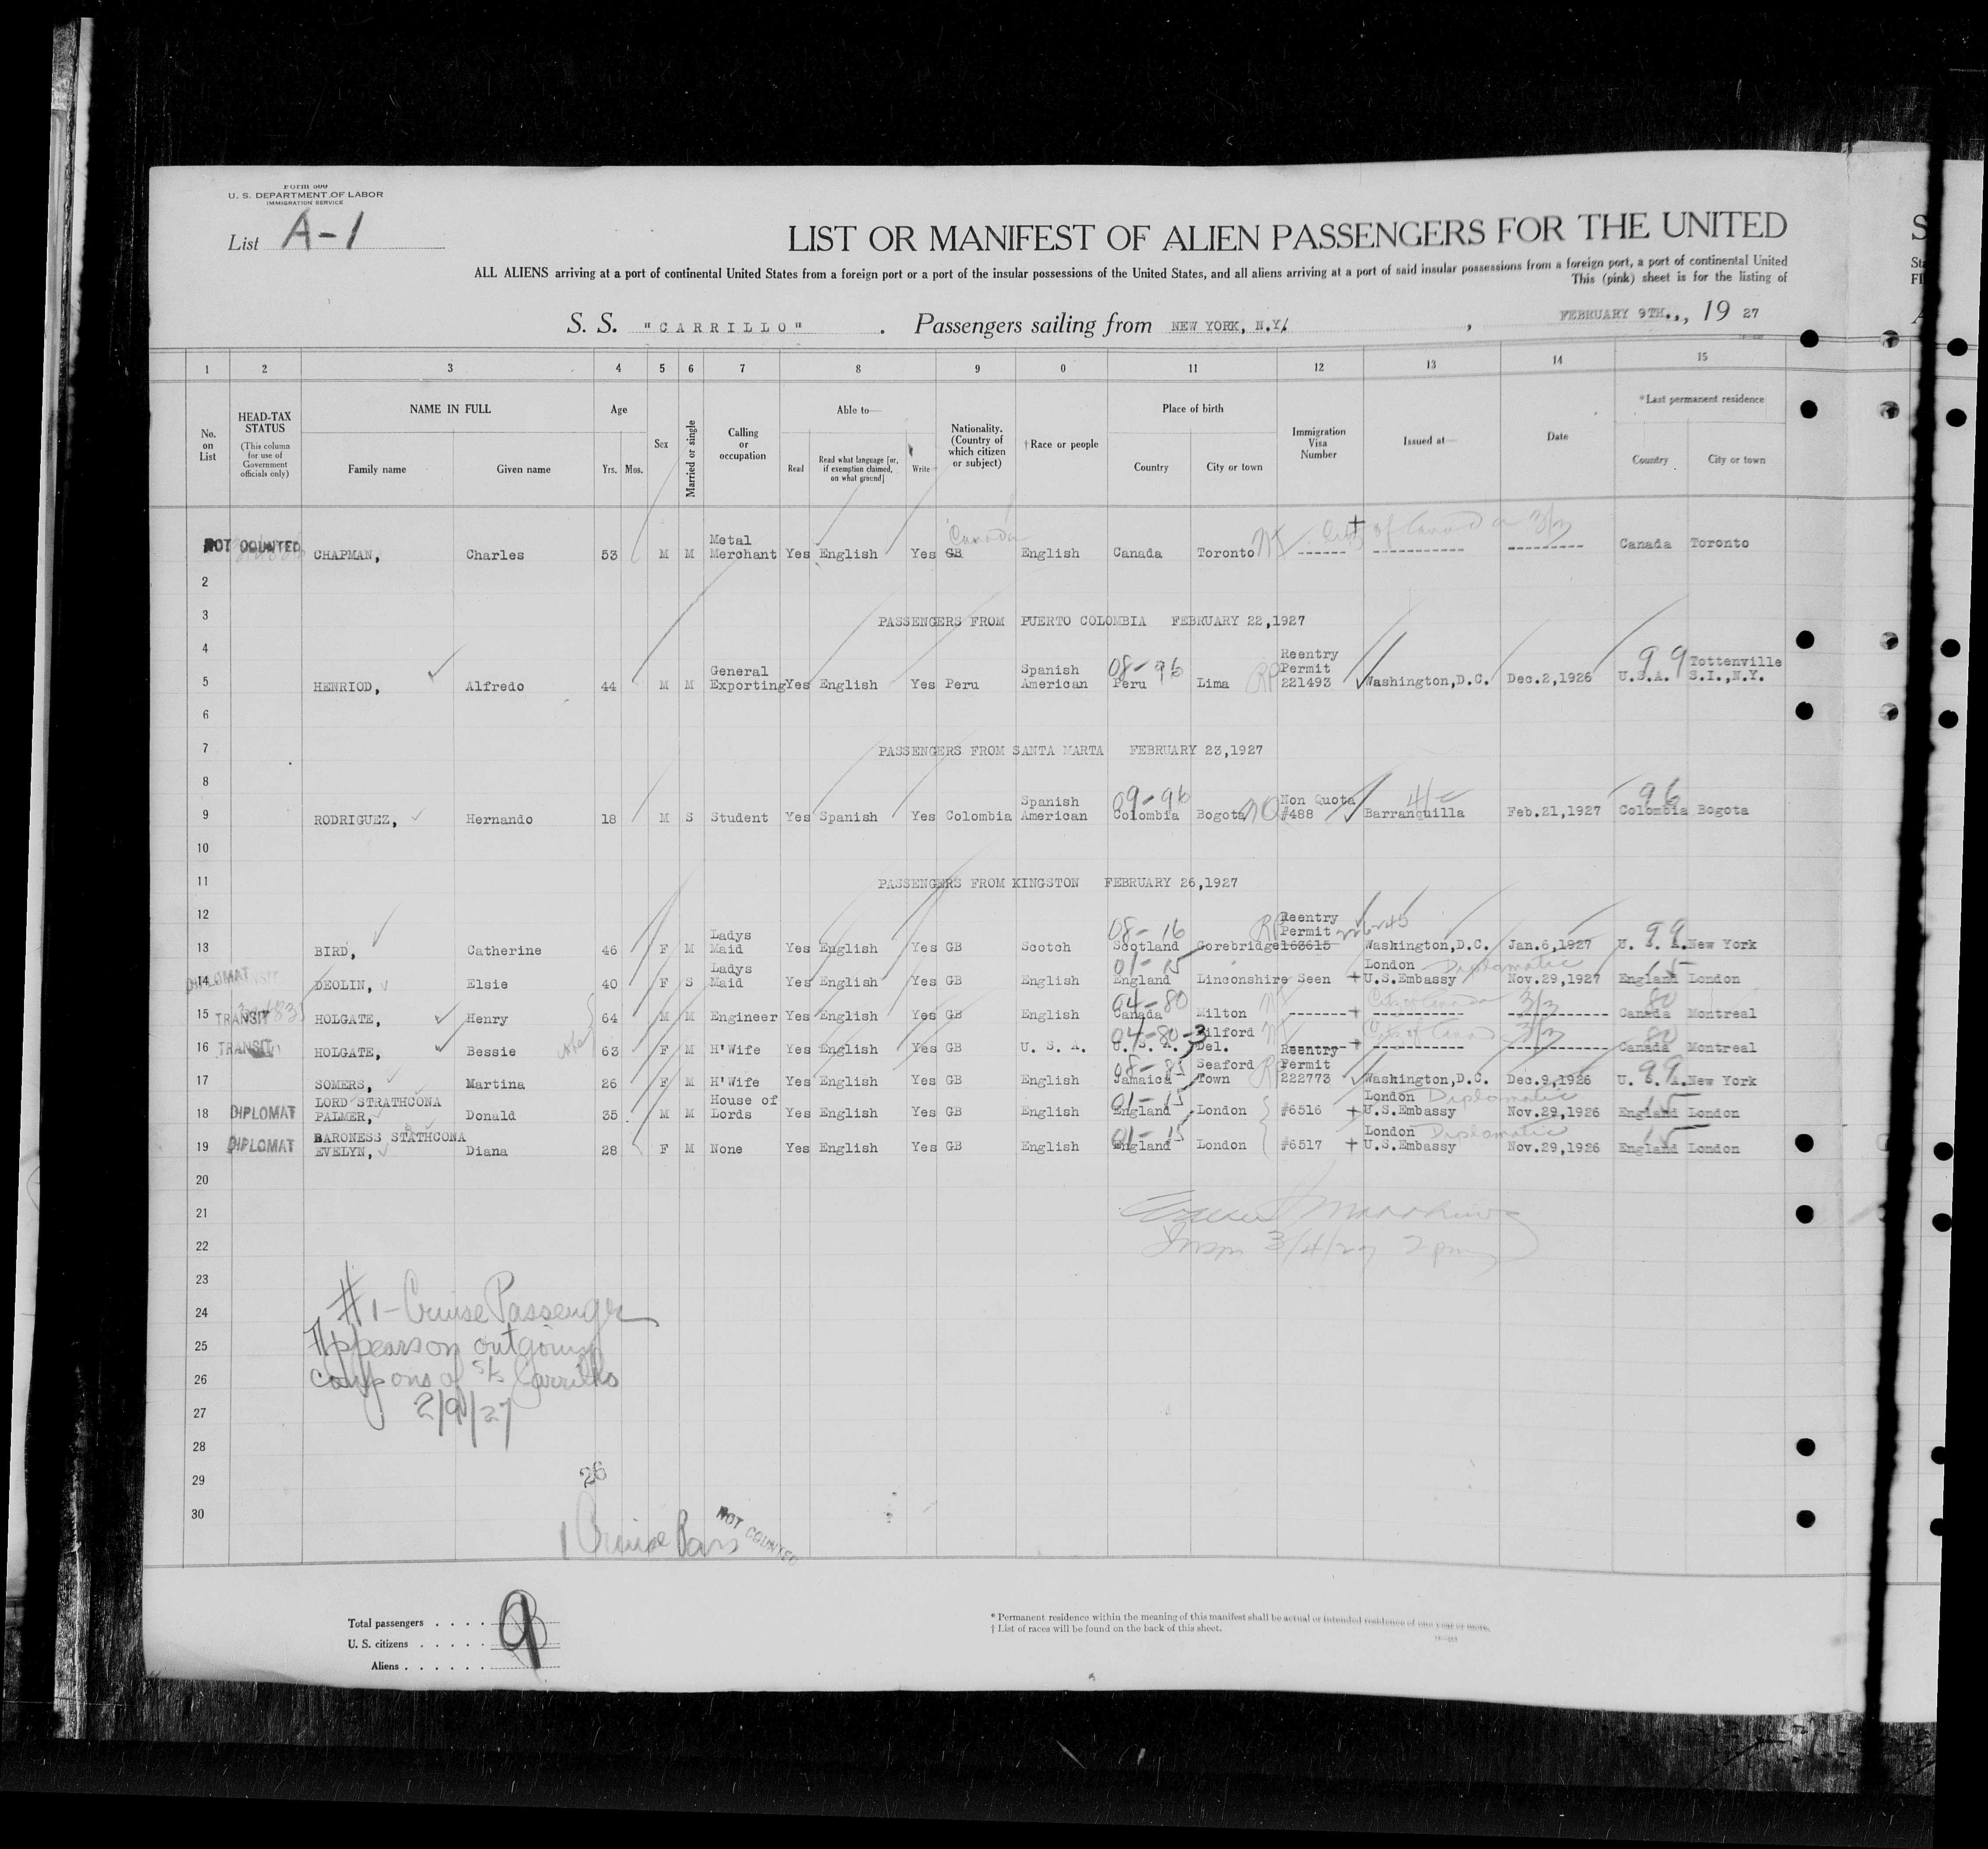 Form 500
U. S. DEPARTMENT OF LABOR
IMMIGRATION SERVICE
List A-1
LIST OR MANIFEST OF ALIEN PASSENGERS FOR THE UNITED
ALL ALIENS arriving at a port of continental United States from a foreign port or a port of the insular possessions of the United States, and all aliens arriving at a port of said insular possessions from a foreign port, a port of continental United
This (pink) sheet is for the listing of
S. S. "CARRILLO" . Passengers sailing from NEW YORK, N.Y. , FEBRUARY 9TH., 19 27
1 2 3 4 5 6 7 8 9 0 11 12 13 14 15
No. on List
HEAD-TAX STATUS (This column for use of Government officials only)
NAME IN FULL
Family name Given name
Age
Yrs. Mos.
Sex
Married or single
Calling or occupation
Able to—
Read Read what language [or, if exemption claimed, on what ground] Write
Nationality. (Country of which citizen or subject)
†Race or people
Place of birth
Country City or town
Immigration Visa Number
Issued at—
Date
*Last permanent residence
Country City or town
NOT COUNTED CHAPMAN, Charles 53 M M Metal Merchant Yes English Yes GB Canada English Canada Toronto ------ ----------- --------- Canada Toronto
2
3 PASSENGERS FROM PUERTO COLOMBIA FEBRUARY 22,1927
4
5 HENRIOD, Alfredo 44 M M General Exporting Yes English Yes Peru Spanish American 08-96 Peru Lima RP Reentry Permit 221493 Washington,D.C. Dec.2,1926 99 U.S.A. Tottenville S.I.,N.Y.
6
7 PASSENGERS FROM SANTA MARTA FEBRUARY 23,1927
8
9 RODRIGUEZ, Hernando 18 M S Student Yes Spanish Yes Colombia Spanish American 09-96 Colombia Bogota NQ Non Quota #488 Barranquilla Feb.21,1927 96 Colombia Bogota
10
11 PASSENGERS FROM KINGSTON FEBRUARY 26,1927
12
13 BIRD, Catherine 46 F M Ladys Maid Yes English Yes GB Scotch 08-16 Scotland Gorebridge RP Reentry Permit 163615 Waskington,D.C. Jan.6,1927 99 U. S. A. New York
DIPLOMAT 14 DEOLIN, Elsie 40 F S Ladys Maid Yes English Yes GB English 01-15 England Linconshire Seen London U.S.Embassy Diplomatic Nov.29,1927 15 England London
15 TRANSIT HOLGATE, Henry 64 M M Engineer Yes English Yes GB English 04-80 Canada Milton ------- ----------- 3/3 80 Canada Montreal
16 TRANSIT HOLGATE, Bessie 63 F M H'Wife Yes English Yes GB U. S. A. 04-80-3 U. S. A. Milford Del. ------- ----------- 3/3 80 Canada Montreal
17 SOMERS, Martina 26 F M H'Wife Yes English Yes GB English 08-85 Jamaica Seaford Town RP Reentry Permit 222773 Washington,D.C. Dec.9,1926 99 U. S. A. New York
18 DIPLOMAT LORD STRATHCONA PALMER, Donald 35 M M House of Lords Yes English Yes GB English 01-15 England London #6516 London U.S.Embassy Diplomatic Nov.29,1926 15 England London
19 DIPLOMAT BARONESS STATHCONA EVELYN, Diana 28 F M None Yes English Yes GB English 01-15 England London #6517 London U.S.Embassy Diplomatic Nov.29,1926 15 England London
20
21
22 Insp 3/4/27 2 pm
23
24 #1-Cruise Passenger
25 Appears on outgoing
26 coupons of SS Carrillo
27 2/9/27
28
29 26
30
1 Cruise Pass NOT COUNTED
Total passengers . . . .
U. S. citizens . . . . . 9
Aliens . . . . . .
* Permanent residence within the meaning of this manifest shall be actual or intended residence of one year or more.
† List of races will be found on the back of this sheet.